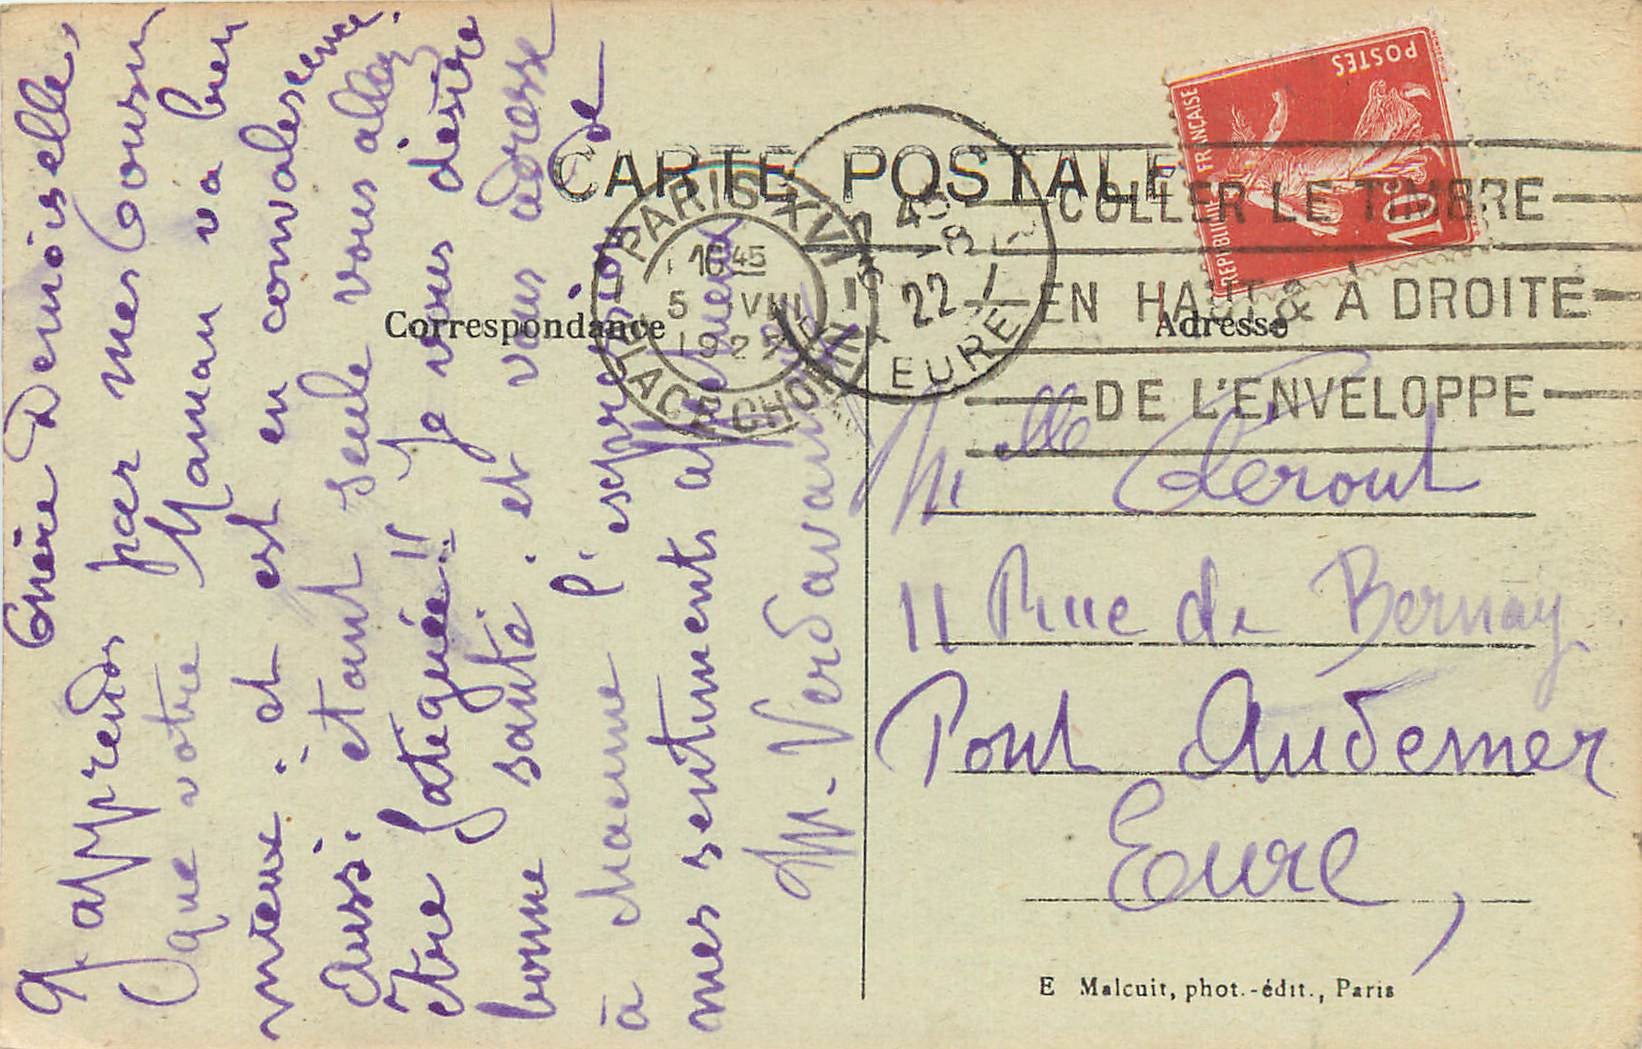 CARTE POSTALE
Correspondance
Adresse
POSTES
REPUBLIQUE FRANÇAISE
10c
PARIS XVI
PLACE CHOPIN
10 45
5 VIII
192
45
8
22
EURE
COLLER LE TIMBRE
EN HAUT & À DROITE
DE L'ENVELOPPE
Chère Demoiselle,
J'apprends par mes Cousin
que votre Maman va bien
mieux. et est en convalescence.
Aussi. étant seule vous allez
être fatiguée!! Je vous désire
bonne santé. et vous adresse
à chacune l'expression de
mes sentiments affectueux
M. Verdavaine
Melle Lerout
11 Rue de Bernay
Pont Audemer
Eure,
E Malcuit, phot.-édit., Paris